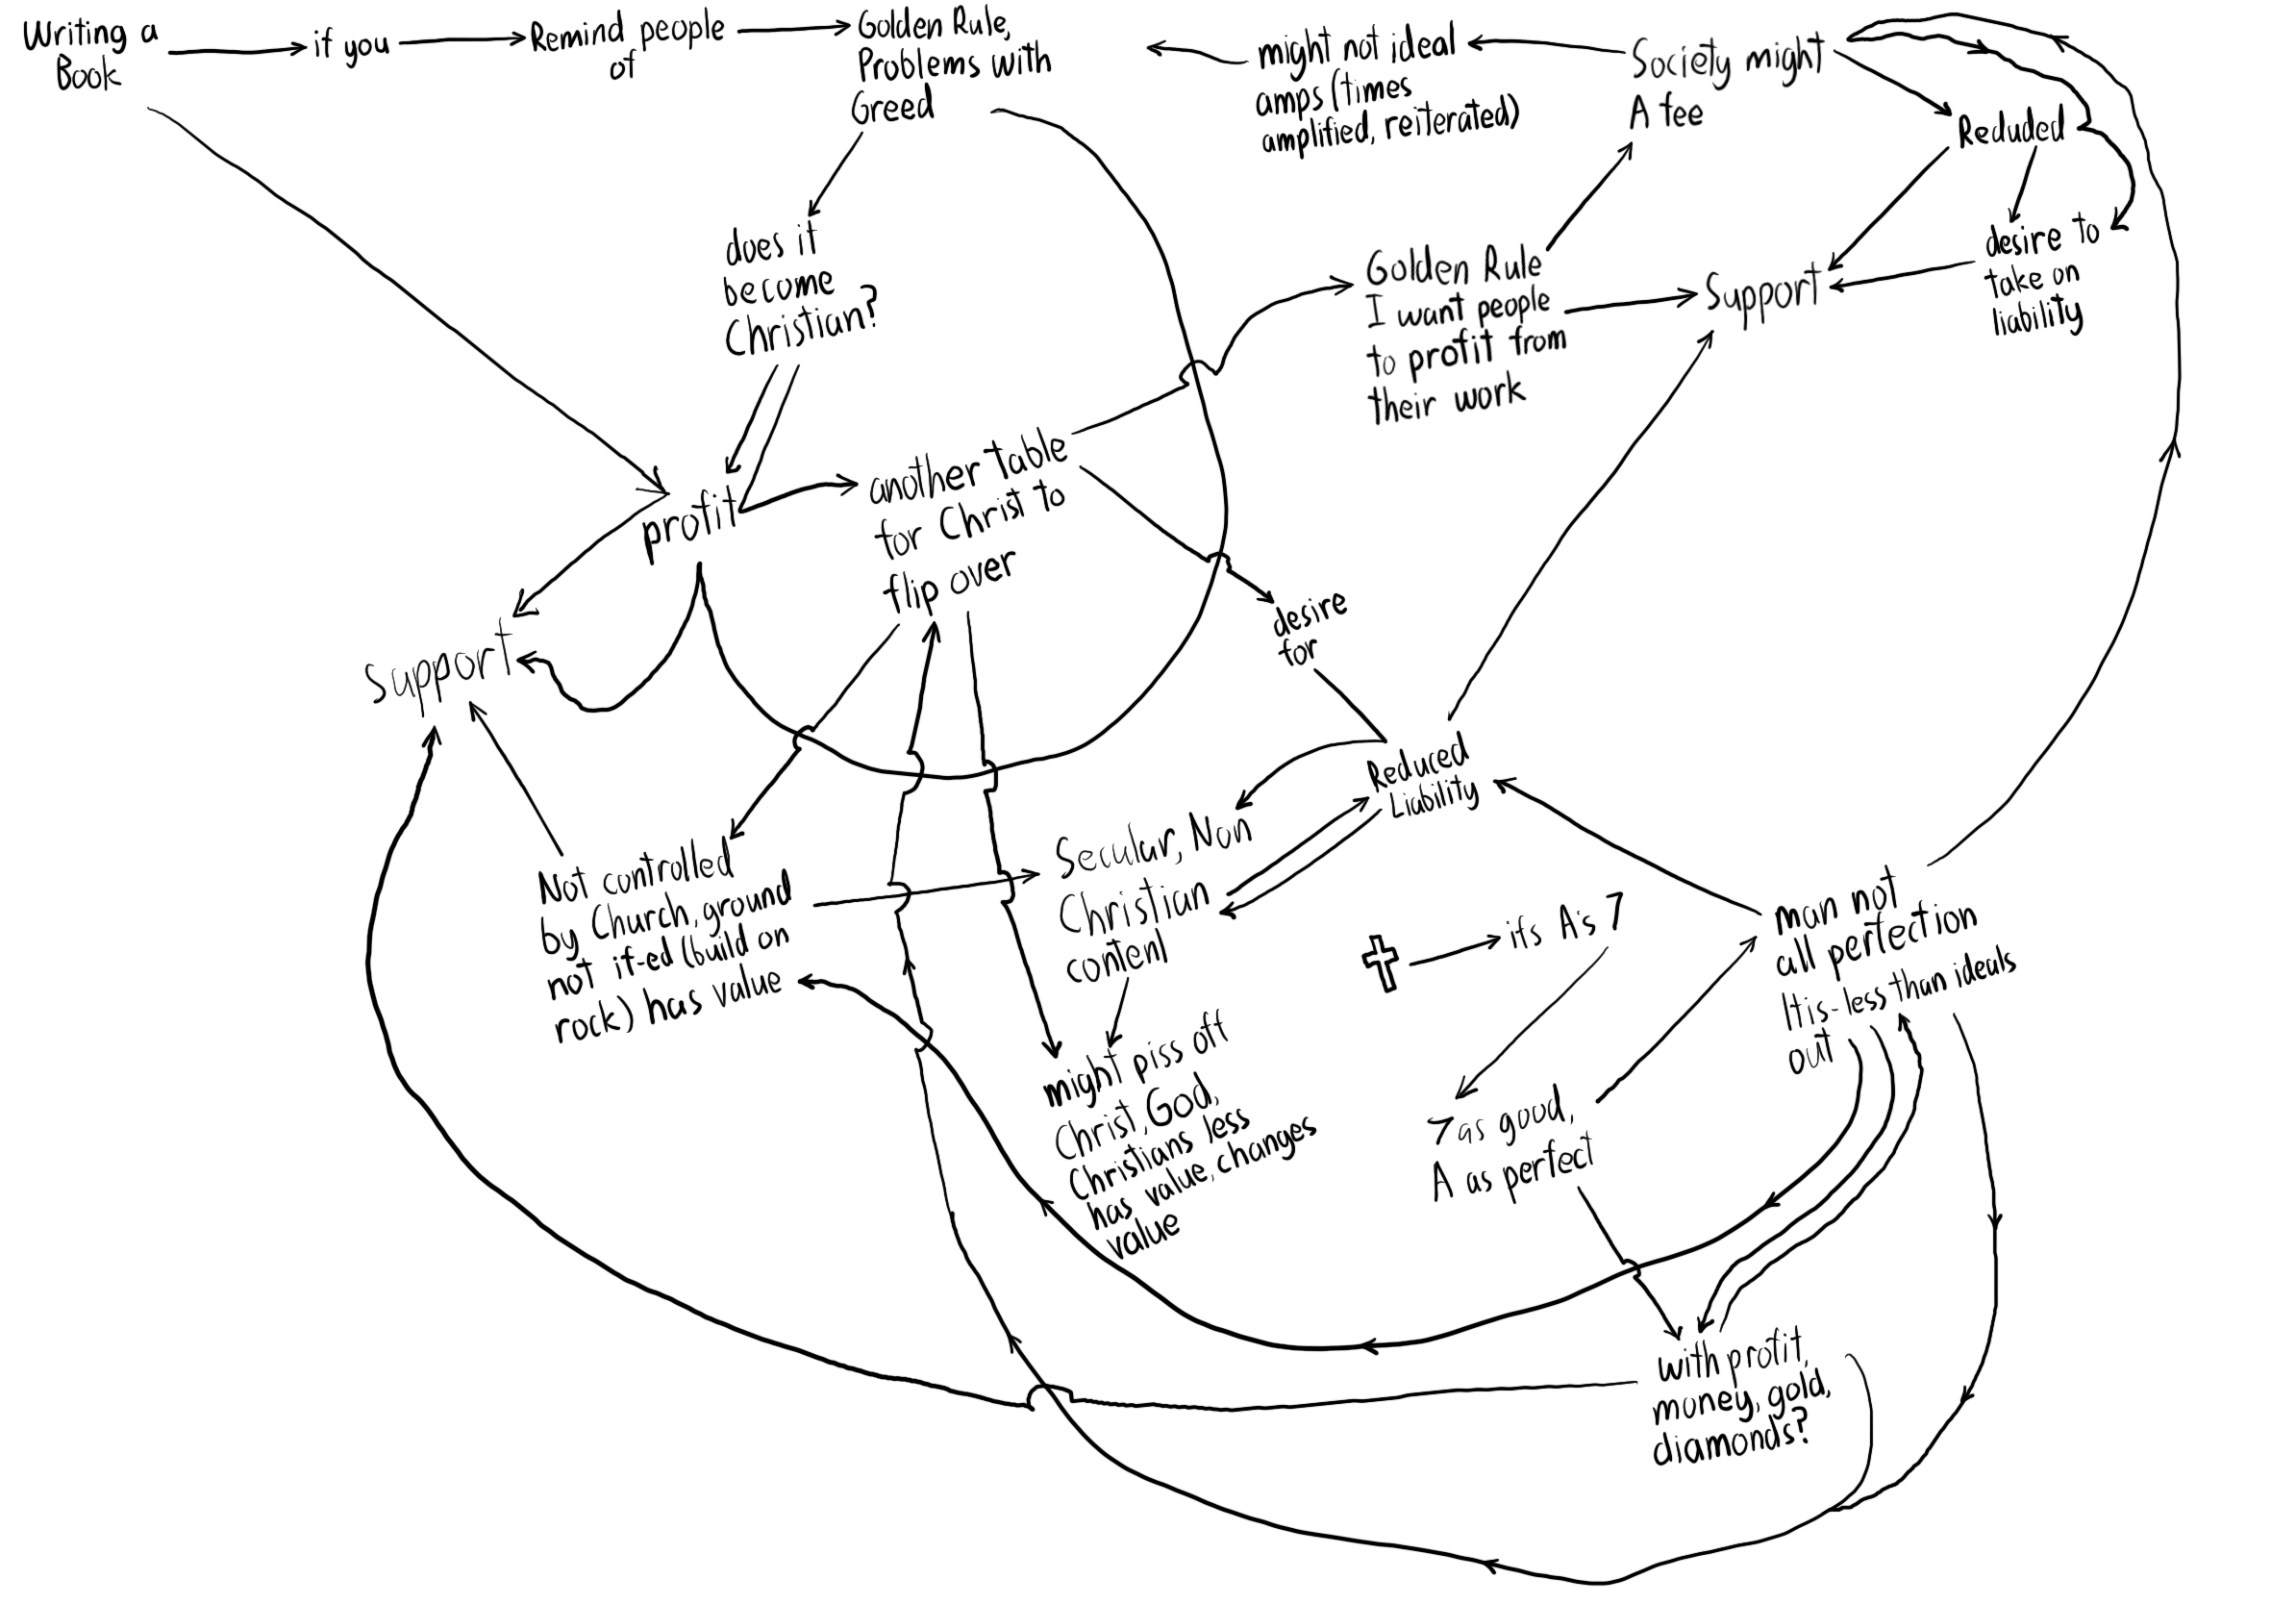 Writing a
Book
if you
Remind people
of
Golden Rule,
Problems with
Greed
might not ideal
amps (times
amplified, reiterated)
Society might
A fee
Reduded
desire to
take on
liability
Support
Golden Rule
I want people
to profit from
their work
does it
become
Christian?
profit
another table
for Christ to
flip over
desire
for
Support
Reduced
Liability
Secular, Non
Christian
content
Not controlled
by Church, ground
not it-ed (build on
rock) has value
might piss off
Christ, God,
Christians less
has value, changes
value
its A's 7
7 as good,
A as perfect
man not
all perfection
It is-less than ideals
out
with profit,
money, gold,
diamonds?